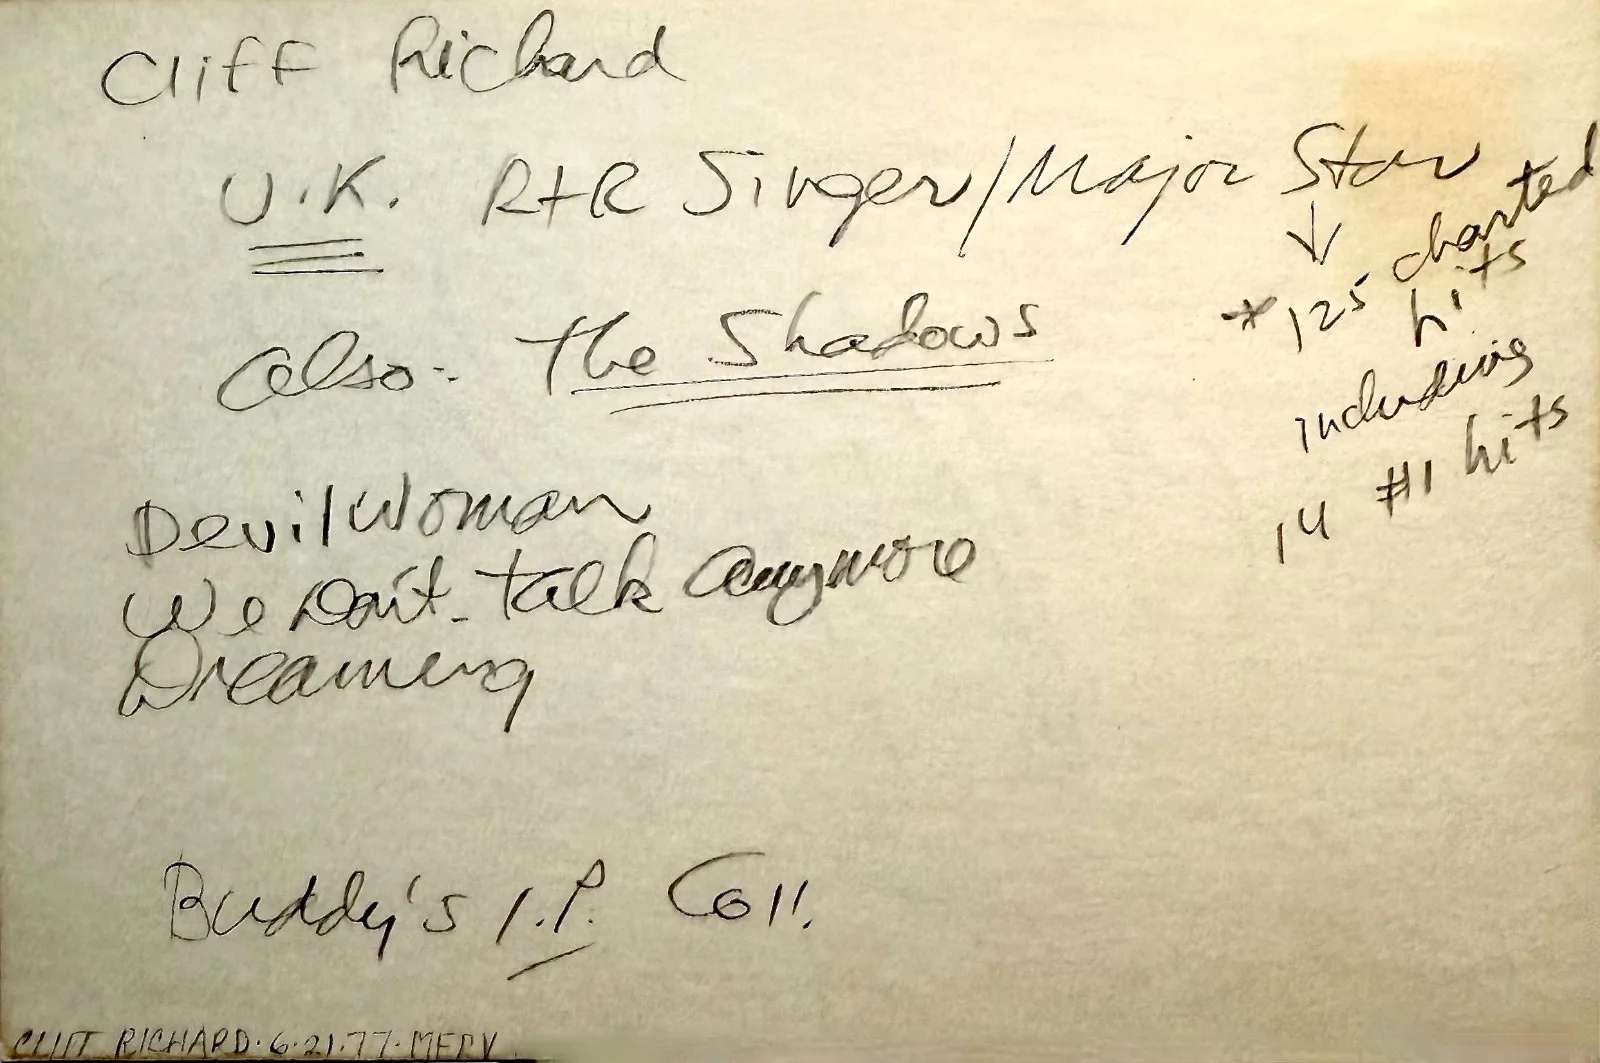 Cliff Richard
U.K. R+R Singer/Major Star
* 125 charted
hits
including
14 #1 hits
also - The Shadows
Devil Woman
We Don't Talk Anymore
Dreaming
Buddy's I.P. Coll.
CLIFF RICHARD · 6·21·77 · MERV